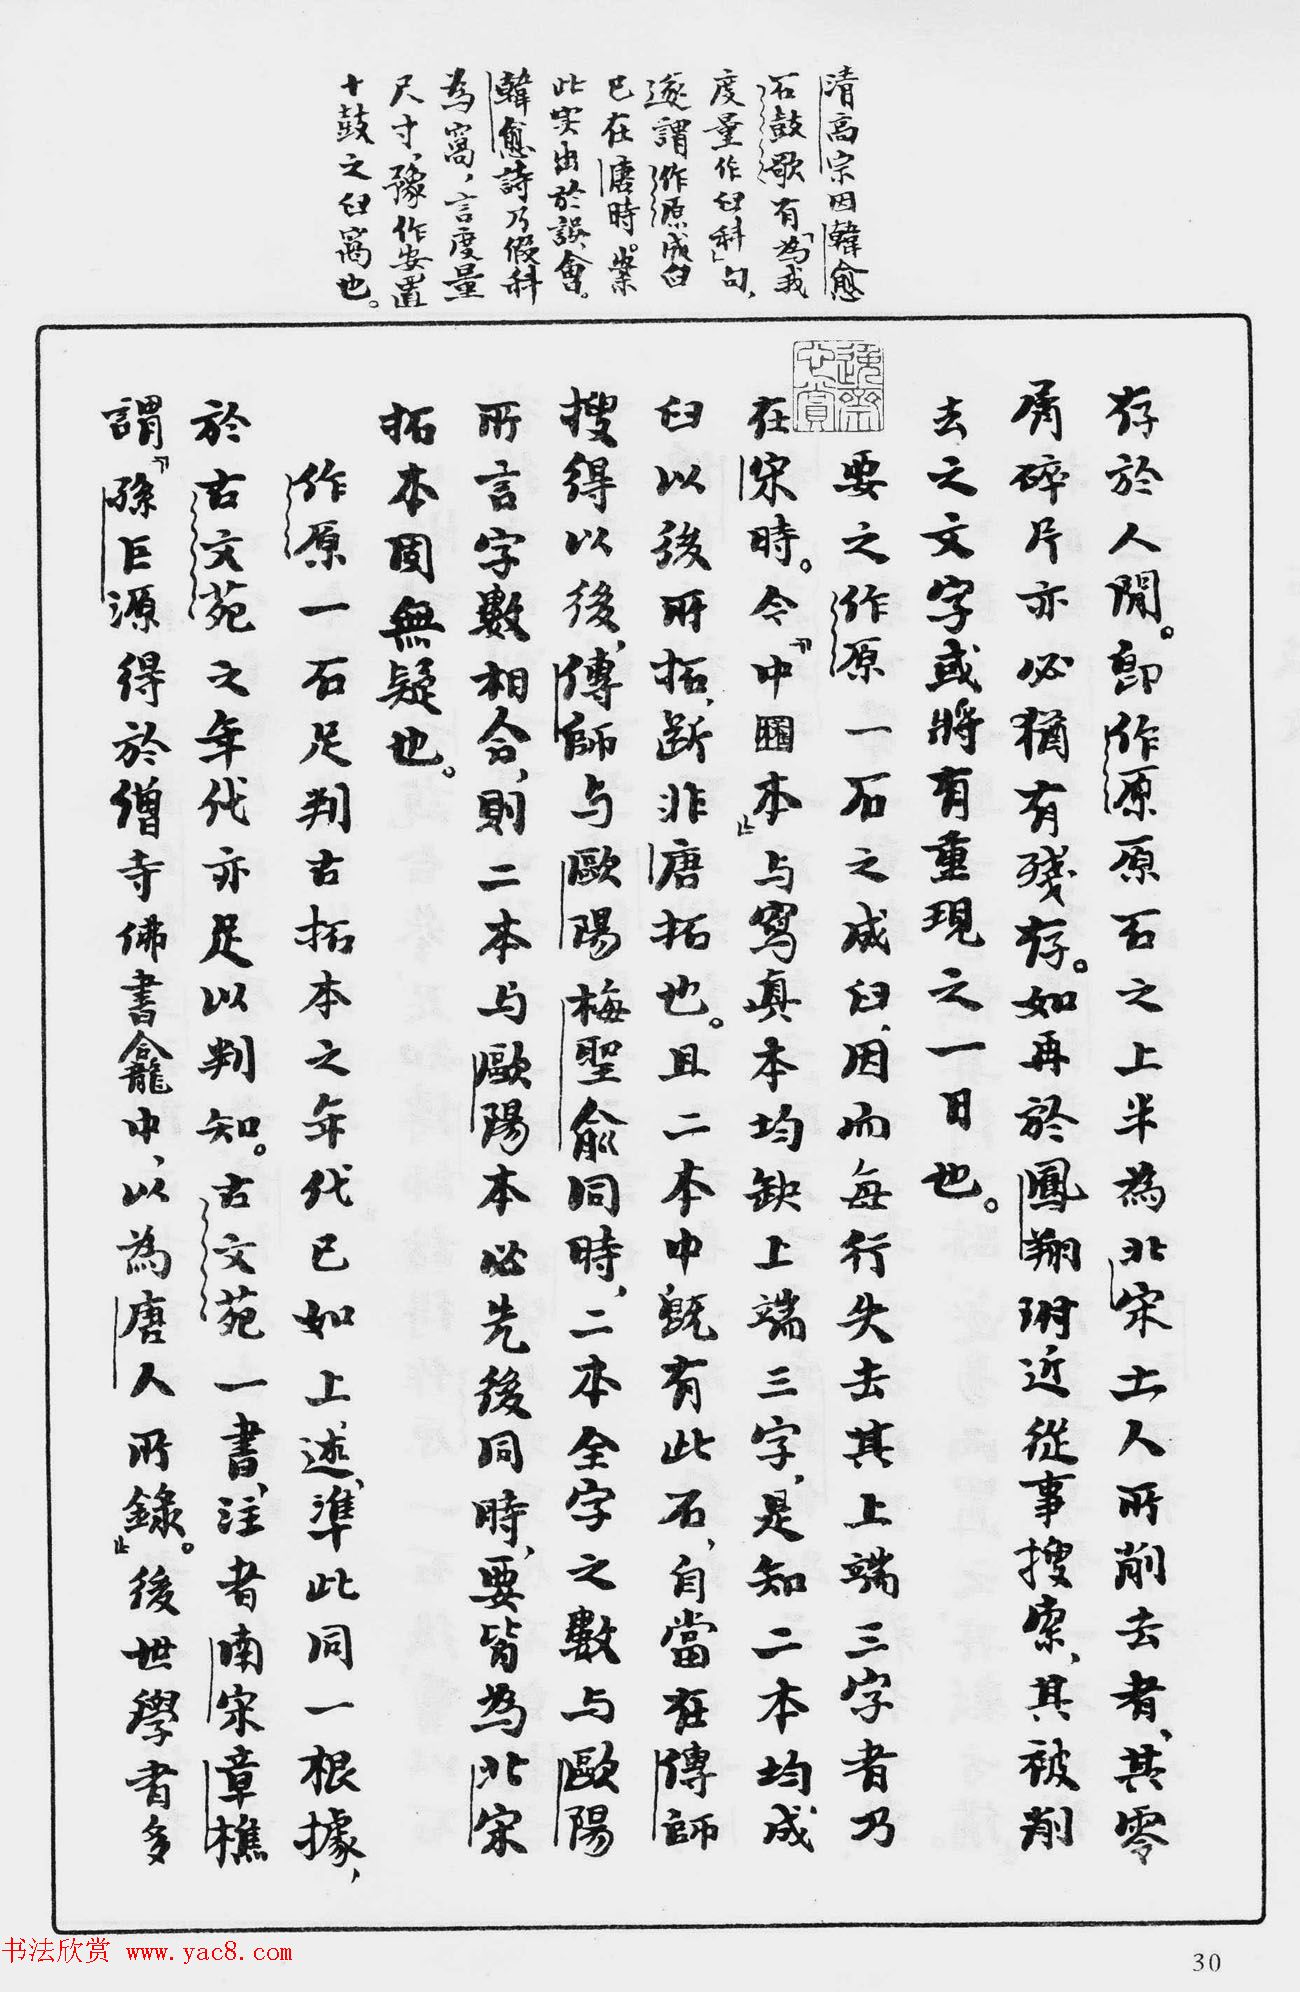 清高宗因韓愈
石鼓歌有「為我
度量作臼科」句,
遂謂作原成臼
已在唐時。案
此实出於誤會。
韓愈詩乃假科
為窩,言度量
尺寸,豫作安置
十鼓之臼窩也。
存於人間。即作原原石之上半為北宋土人所削去者,其零
屑碎片亦必猶有殘存。如再於鳳翔附近從事搜索,其被削
去之文字或將有重現之一日也。
要之作原一石之成臼,因而每行失去其上端三字者乃
在宋時。今「中國本」与寫真本均缺上端三字,是知二本均成
臼以後所拓,斷非唐拓也。且二本中既有此石,自當在傳師
搜得以後,傳師与歐陽梅聖俞同時,二本全字之數与歐陽
所言字數相合,則二本与歐陽本必先後同時,要皆為北宋
拓本固無疑也。
作原一石足判古拓本之年代已如上述,準此同一根據,
於古文苑之年代亦足以判知。古文苑一書,注者南宋章樵
謂「孫巨源得於僧寺佛書龕中,以為唐人所錄」。後世學者多
书法欣赏 www.yac8.com
30